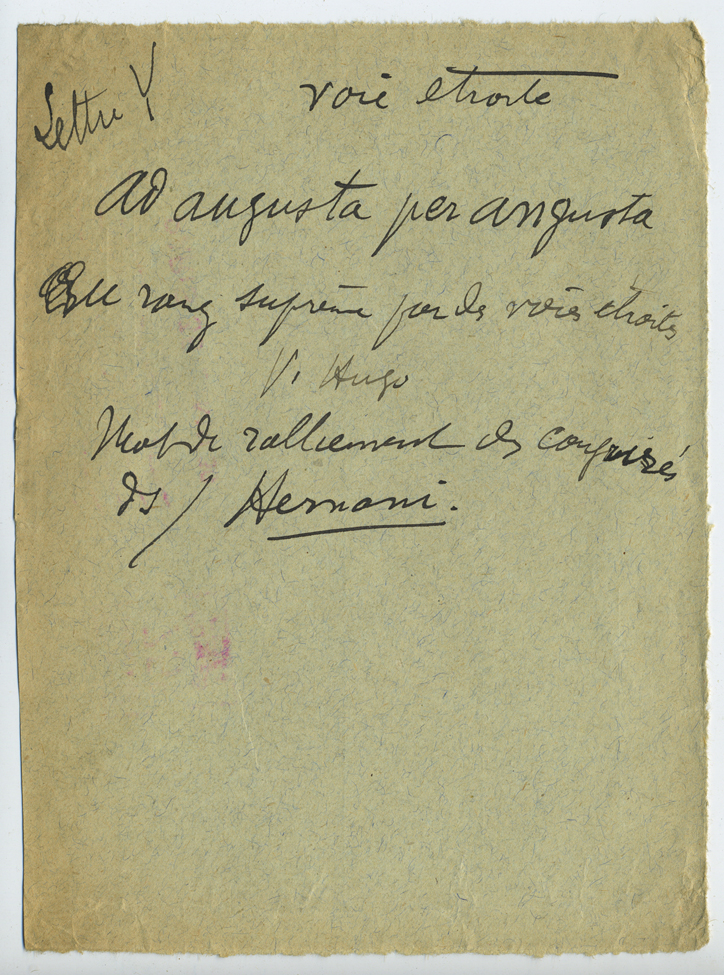 Lettre Y
voie étroite
Ad augusta per angusta
Au rang suprême par des voies étroites
V. Hugo
Mot de ralliement des conjurés
ds / Hernani.